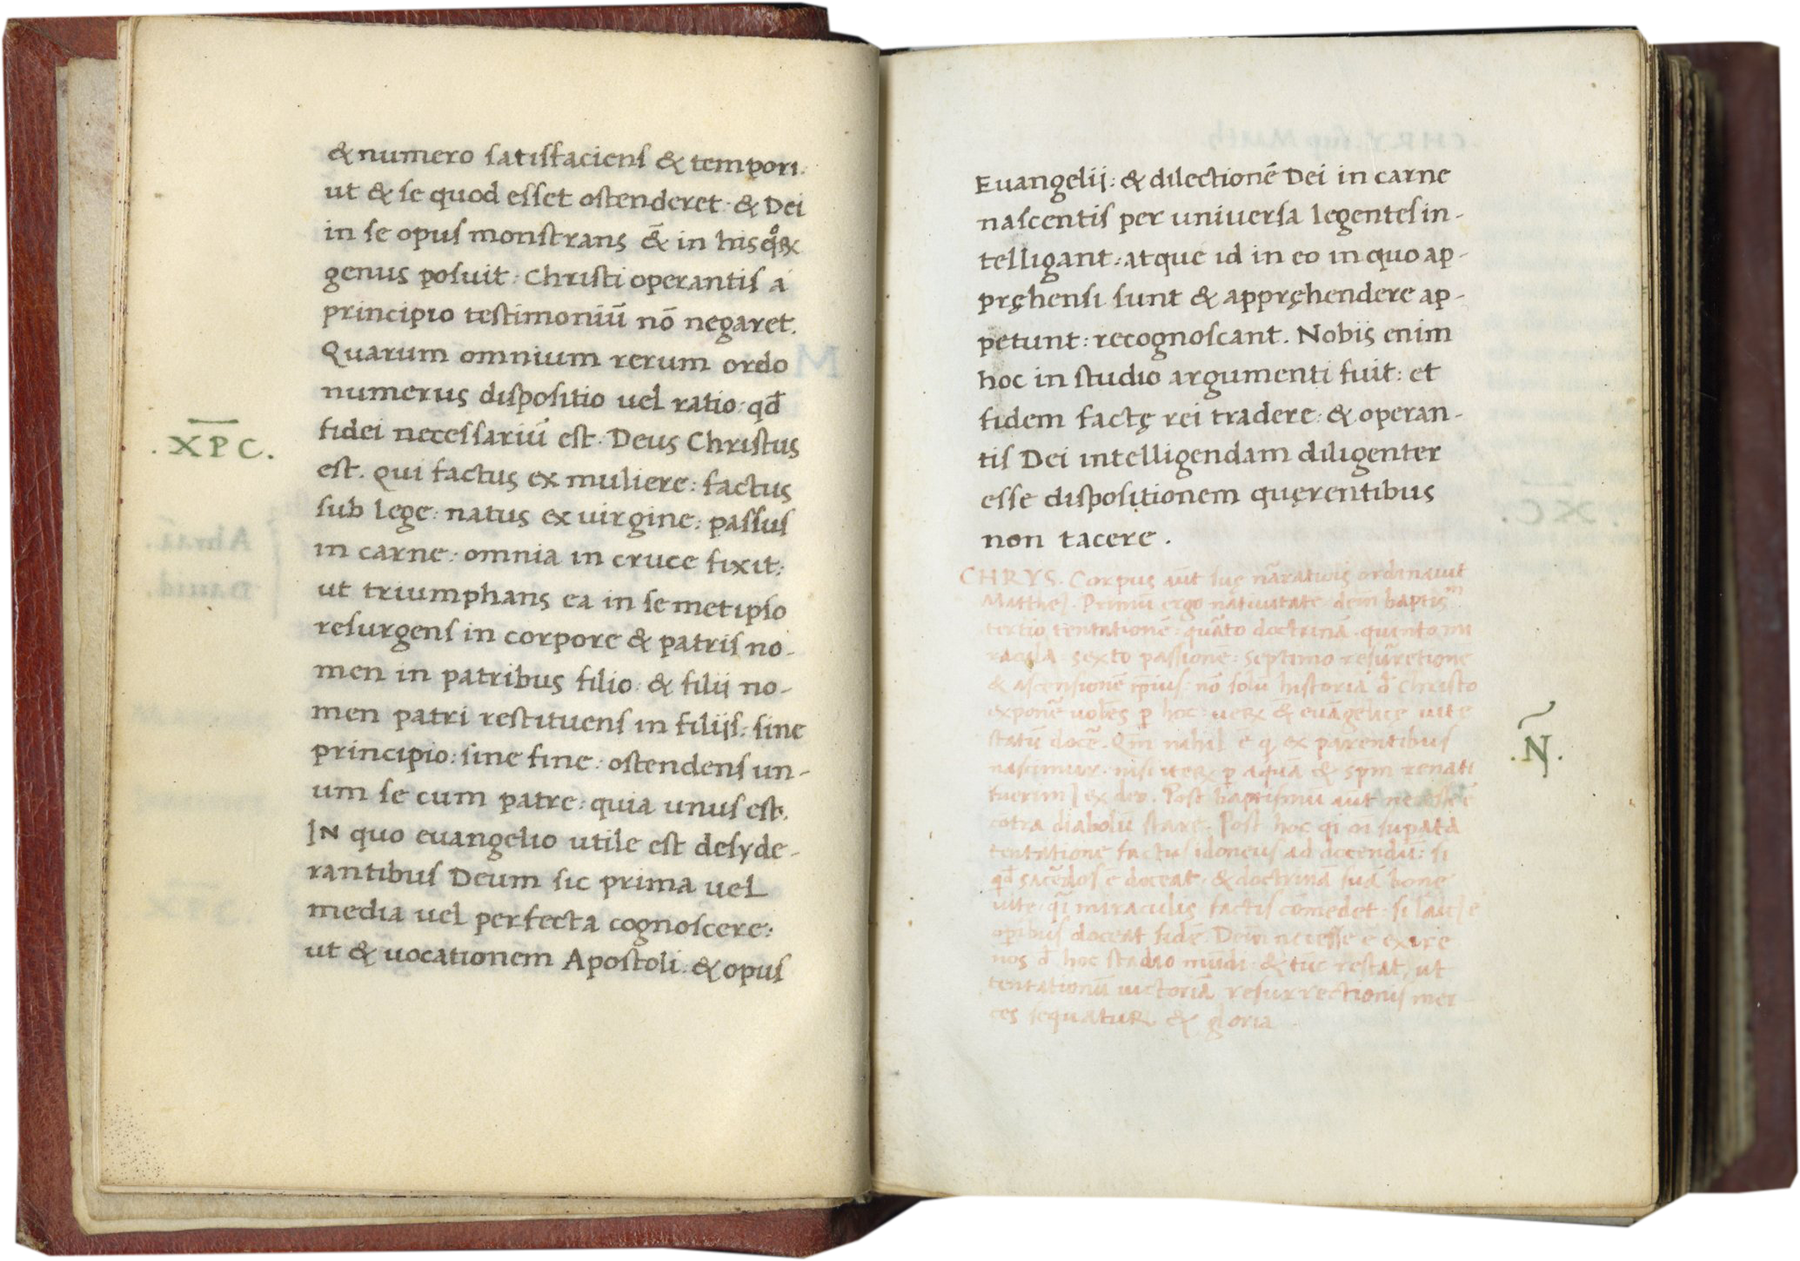 & numero satisfaciens & tempori:
ut & se quod esset ostenderet: & Dei
in se opus monstrans & in his qͦꝝ
genus posuit: Christi operantis a
principio testimoniū nō negaret.
Quarum omnium rerum ordo
numerus dispositio uel ratio: qđ
fidei necessariū est: Deus Christus
.XP̅C.
est. Qui factus ex muliere: factus
sub lege: natus ex uirgine: passus
in carne: omnia in cruce fixit:
ut triumphans ea in semetipso
resurgens in corpore & patris no-
men in patribus filio: & filii no-
men patri restituens in filijs: sine
principio: sine fine: ostendens un-
um se cum patre: quia unus est.
IN quo euangelio utile est desyde-
rantibus Deum sic prima uel
media uel perfecta cognoscere:
ut & uocationem Apostoli: & opus
Euangelij: & dilectionē Dei in carne
nascentis per uniuersa legentes in-
telligant: atque id in eo in quo ap-
pręhensi sunt & appręhendere ap-
petunt: recognoscant. Nobis enim
hoc in studio argumenti fuit: et
fidem factę rei tradere: & operan-
tis Dei intelligendam diligenter
esse dispositionem quęrentibus
non tacere.
CHRYS. Corpus aūt suę nārationis ordinauit
Matthei. Primū ergo natiuitatē: dein baptism
tertio tentationē: quarto doctrinā. quinto mi
racula. sexto passionē: septimo resurretionē
& ascensionē ipsius: nō solū historiā đ Christo
exponē uolēs p hoc: uerꝝ & euāgelicę uitę
statū docē. Qm̄ nihil ē q ex parentibus
.N̄.
nascimur. nisi iterꝝ p aquā & spm̄ renati
fuerimus ex deo. Post baptismū aūt necesse ē
cōtra diabolū stare. Post hoc qi oi supata
tentatione factus idoneus ad docendū: si
qđ sacerdos ē doceat: & doctrinā suā bonę
uitę qi miraculis factis cōmēdet: si laicus ē
opibus doceat fidē. Dein necesse ē exire
nos đ hoc stadio mūdi: & tūc restat, ut
tentationū uictoriā resurrectionis mer
ces sequatur & gloria